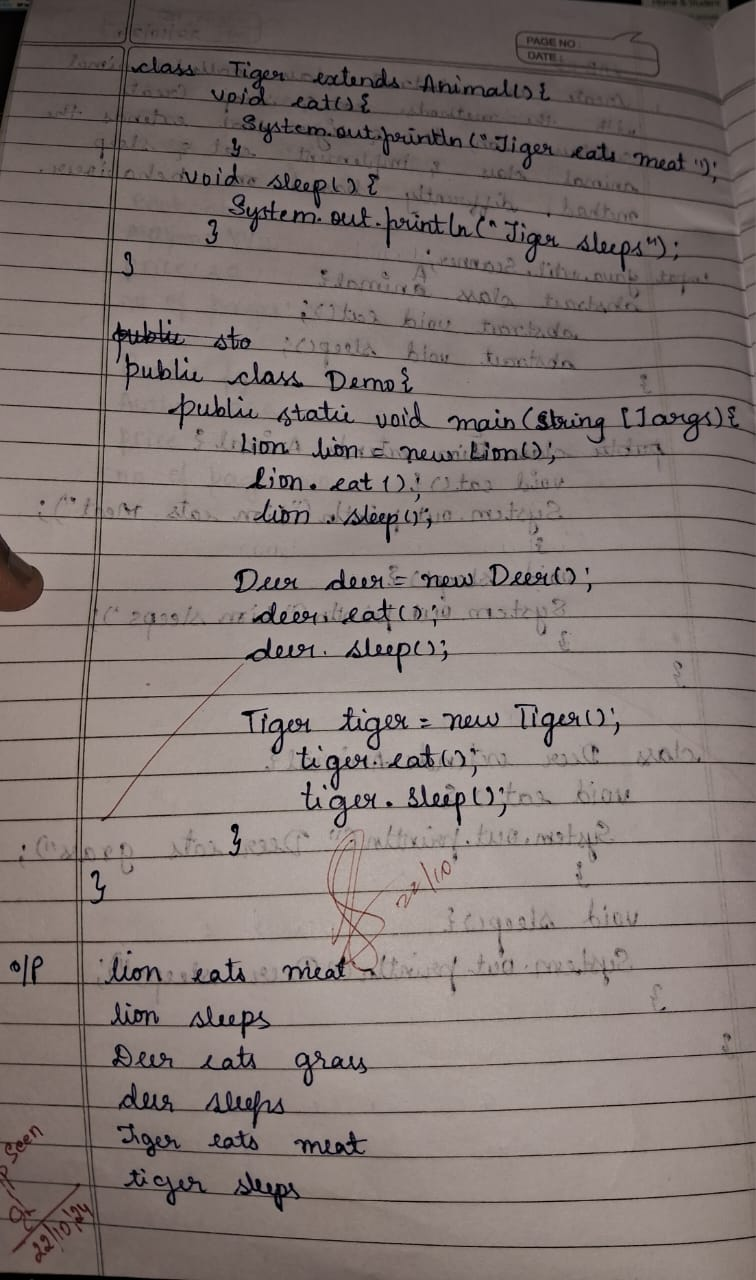 PAGE NO :
DATE :
class Tiger extends Animal() {
void eat() {
System.out.println ("Tiger eats meat ");
}
void sleep() {
System.out.println ("Tiger sleeps");
}
}
public sto
public class Demo {
public static void main (String [] args) {
Lion lion = new Lion();
lion. eat ();
lion . sleep();
Deer deer = new Deer();
deer. eat();
deer. sleep();
Tiger tiger = new Tiger();
tiger. eat();
tiger. sleep();
}
22/10
}
O/P lion eats meat
lion sleeps
Deer eats grass
deer sleeps
Tiger eats meat
tiger sleeps
O/P seen
22/10/24